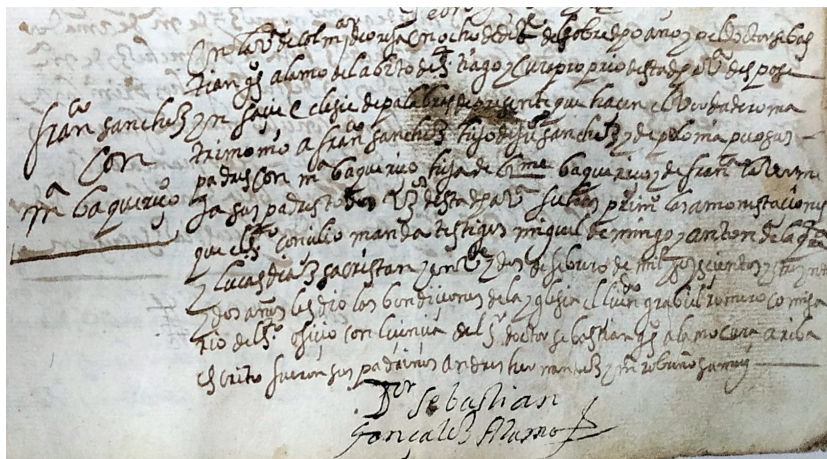 franco sanchez
con
ma baquerico
En la va de colmr de oreja en ocho de dize de sobre dho año yo el Doctor sebas
tian gs alamo del abito de S tiago y cura proprio desta dha va despose
yn façie eclesie de palabras de presente que hacen el verdadero ma
trimonio a franco sanchez hijo de ju sanchez y de paloma sus
padres con ma baquerico hija de baquerico y de franca
sus padres todos vs desta dha va las amonestaciones
que el sto conçilio manda testigos miguel de mingo y anton de la
y lucas diaz sacristan y en de de mil y seiscientos y treynta
y dos años les dio las bendiçiones de la yglesia el licendo grabiel romero comisa
rio del sto ofiçio con liçençia del sr doctor sebastian gs alamo cura ariba
escrito fueron sus padrinos andres hernandez y
Dor Sebastian
Gonçalez Alamo